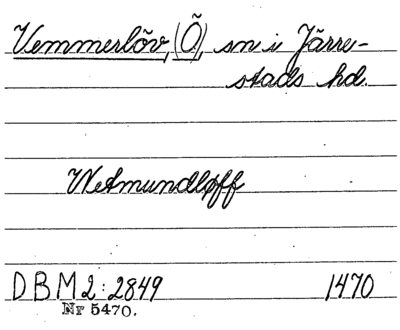 Vemmerlöv, (Ö) sn i Järre-
stads hd.
Wetmundløff
DBM 2:2849 1470
Nr 5470.